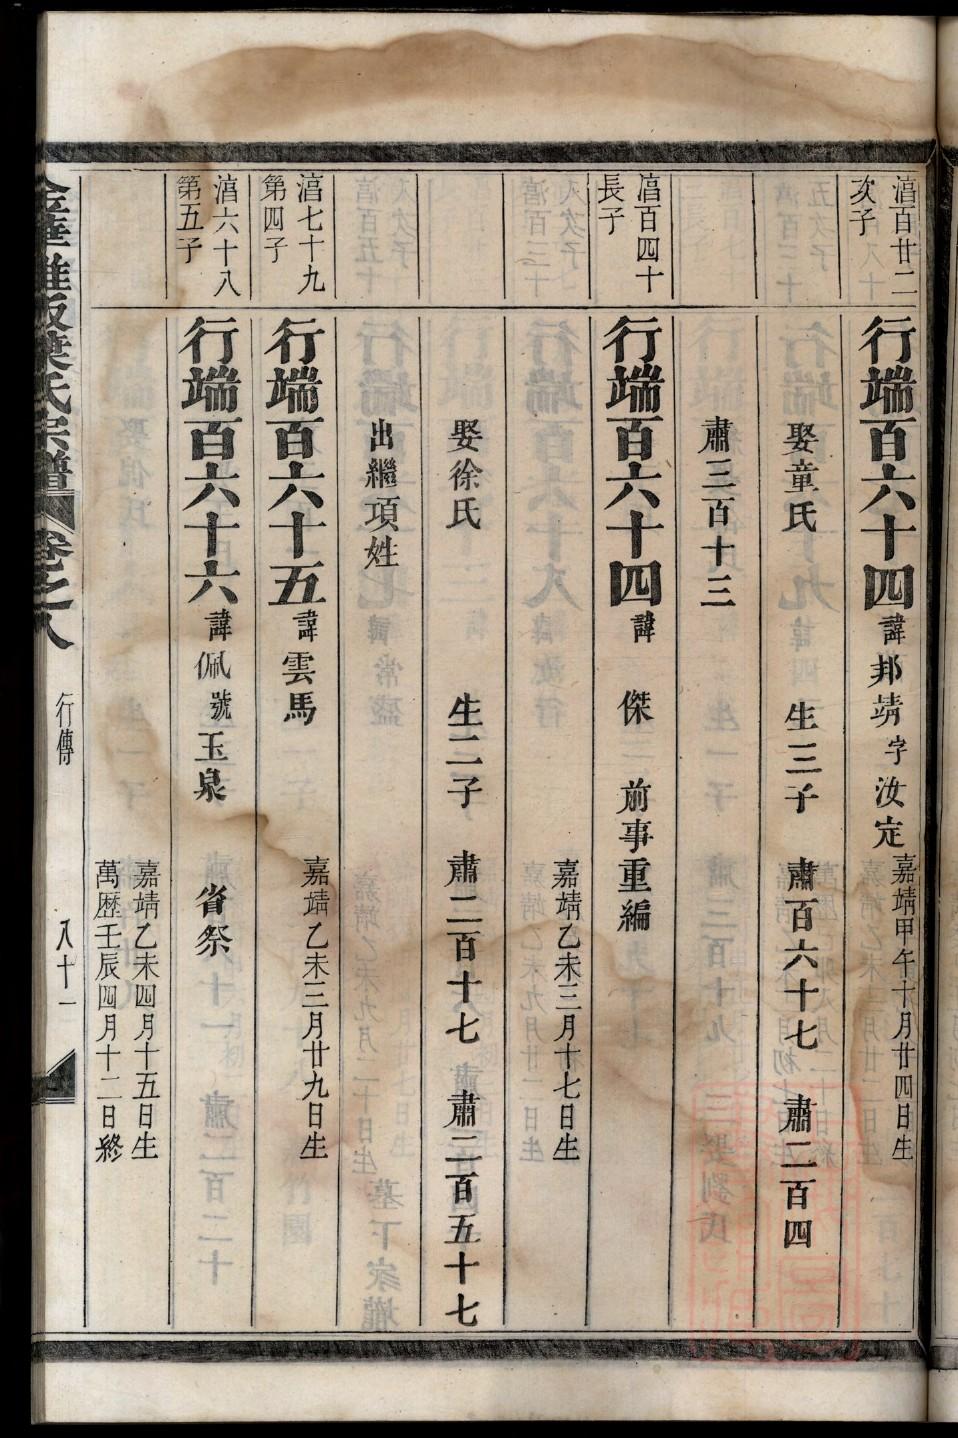 湻百廿二
次子
行端百六十四諱邦靖字汝定
嘉靖甲午十月廿四日生
娶童氏 生三子 肅百六十七 肅二百四
肅三百十三
湻百四十
長子
行端百六十四諱 傑 前事重編
嘉靖乙未三月十七日生
娶徐氏 生二子 肅二百十七 肅二百五十七
出繼項姓
湻七十九
第四子
行端百六十五諱雲馬
嘉靖乙未三月廿九日生
湻六十八
第五子
行端百六十六諱佩號玉泉 省祭
嘉靖乙未四月十五日生
萬歷壬辰四月十二日終
葉氏宗譜 卷之八 行傳 八十一